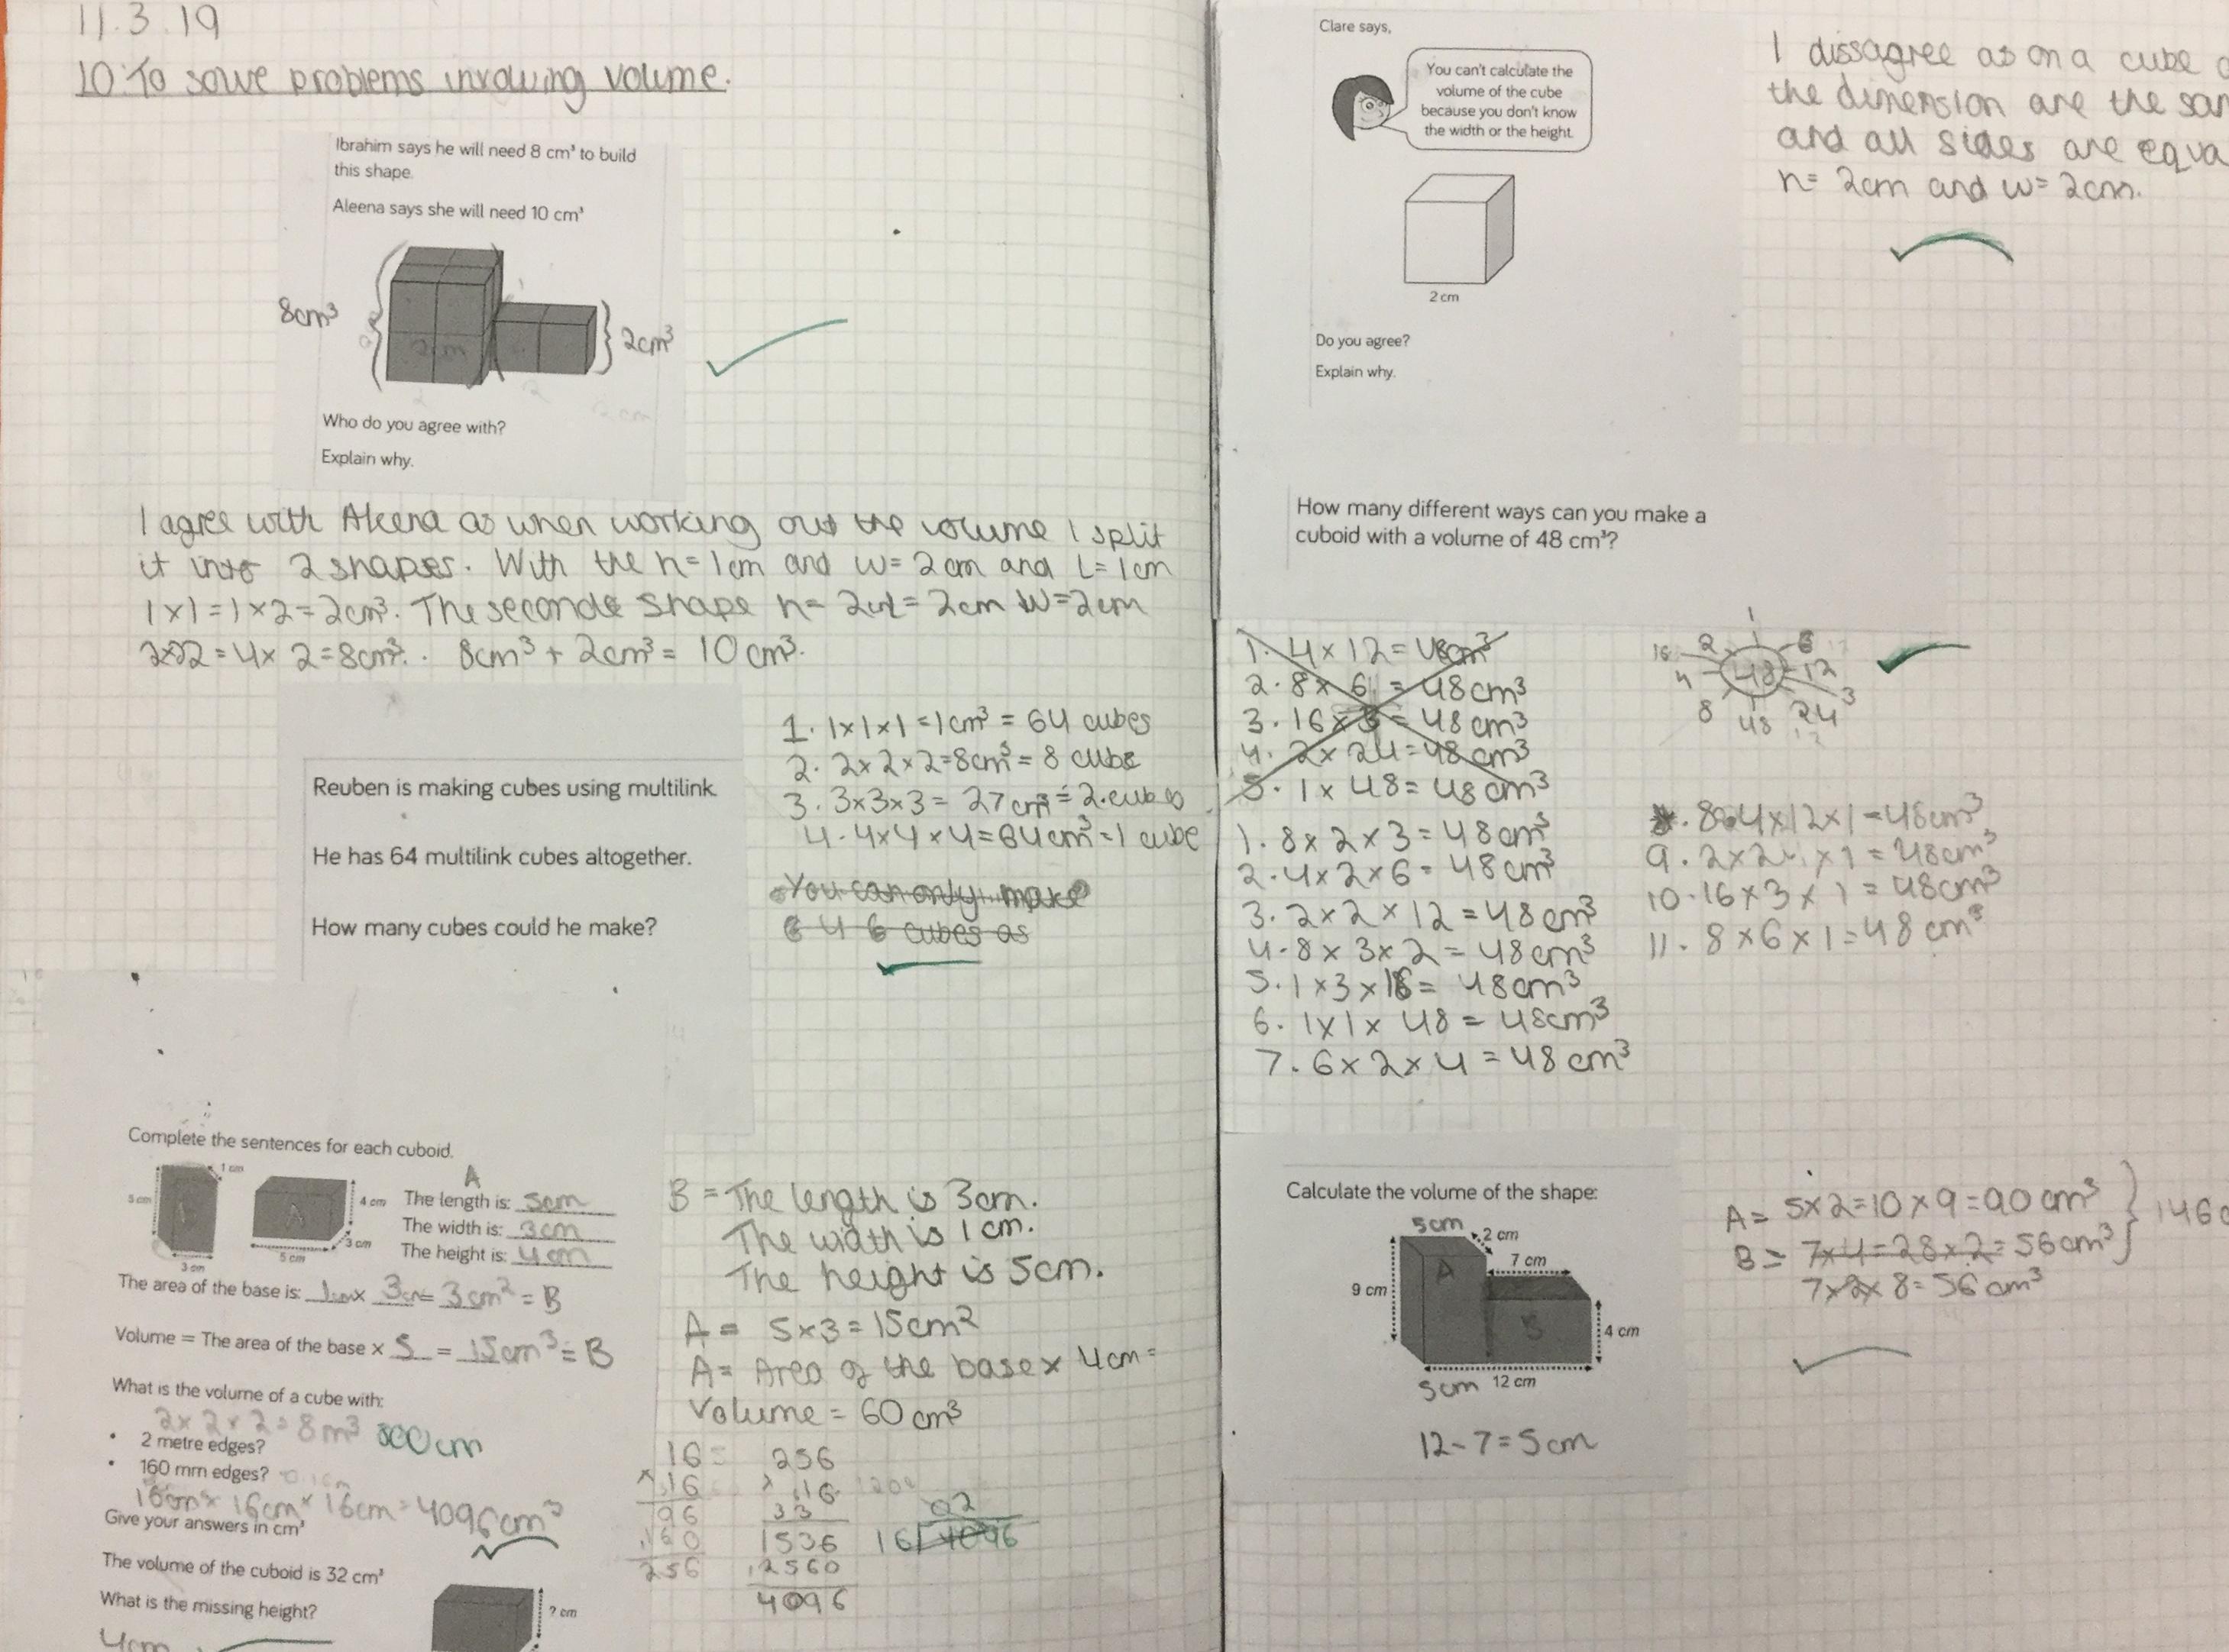 11.3.19
10:To solve problems involving volume.
Ibrahim says he will need 8 cm³ to build
this shape.
Aleena says she will need 10 cm³
8cm³
2cm³
Who do you agree with?
Explain why.
I agree with Aleena as when working out the volume I split
it into 2 shapes. With the h=1cm and w=2cm and L=1cm
1×1=1×2=2cm³. The seconde shape h= 2cm L=2cm W=2cm
2×2=4×2=8cm³. 8cm³+2cm³= 10cm³.
Reuben is making cubes using multilink.
He has 64 multilink cubes altogether.
How many cubes could he make?
1. 1×1×1=1cm³=64 cubes
2. 2×2×2=8cm³=8 cube
3. 3×3×3= 27cm³=2.cubes
4. 4×4×4=64cm³=1 cube
You can only make
6 4 6 cubes as
Complete the sentences for each cuboid.
1 cm
5 cm
3 cm
A
4 cm
3 cm
5 cm
A
The length is: 5cm
The width is: 3cm
The height is: 4cm
The area of the base is: 1cm× 3cm= 3cm² = B
Volume = The area of the base × 5 = 15cm³= B
B = The length is 3cm.
The width is 1cm.
The height is 5cm.
A = 5×3=15cm²
A= Area of the base× 4cm=
Volume = 60cm³
What is the volume of a cube with:
2×2×2=8m³ 800cm
• 2 metre edges?
• 160 mm edges?
16cm× 16cm× 16cm=4096cm³
Give your answers in cm³
16
×16
96
160
256
256
×16
33
1536
2560
4096
16 4096
The volume of the cuboid is 32 cm³
What is the missing height?
? cm
4cm
Clare says,
You can't calculate the
volume of the cube
because you don't know
the width or the height.
2 cm
Do you agree?
Explain why.
I dissagree as on a cube
the dimension are the
and all sides are
h= 2cm and w=2cm.
How many different ways can you make a
cuboid with a volume of 48 cm³?
1. 4×12=48cm³
2. 8×6=48cm³
3. 16×3=48cm³
4. 2×24=48cm³
5. 1×48=48cm³
1
2
6
16
48
12
4
3
8
48
24
1. 8×2×3=48cm³
2. 4×2×6=48cm³
3. 2×2×12=48cm³
4. 8×3×2=48cm³
5. 1×3×16= 48cm³
6. 1×1×48=48cm³
7. 6×2×4=48cm³
8. 4×12×1=48cm³
9. 2×24×1=48cm³
10. 16×3×1=48cm³
11. 8×6×1=48cm³
Calculate the volume of the shape:
5cm
2 cm
7 cm
A
9 cm
B
4 cm
5cm 12 cm
12-7=5cm
A= 5×2=10×9=90cm³
B= 7×4=28×2=56cm³
146
7×2×8=56cm³